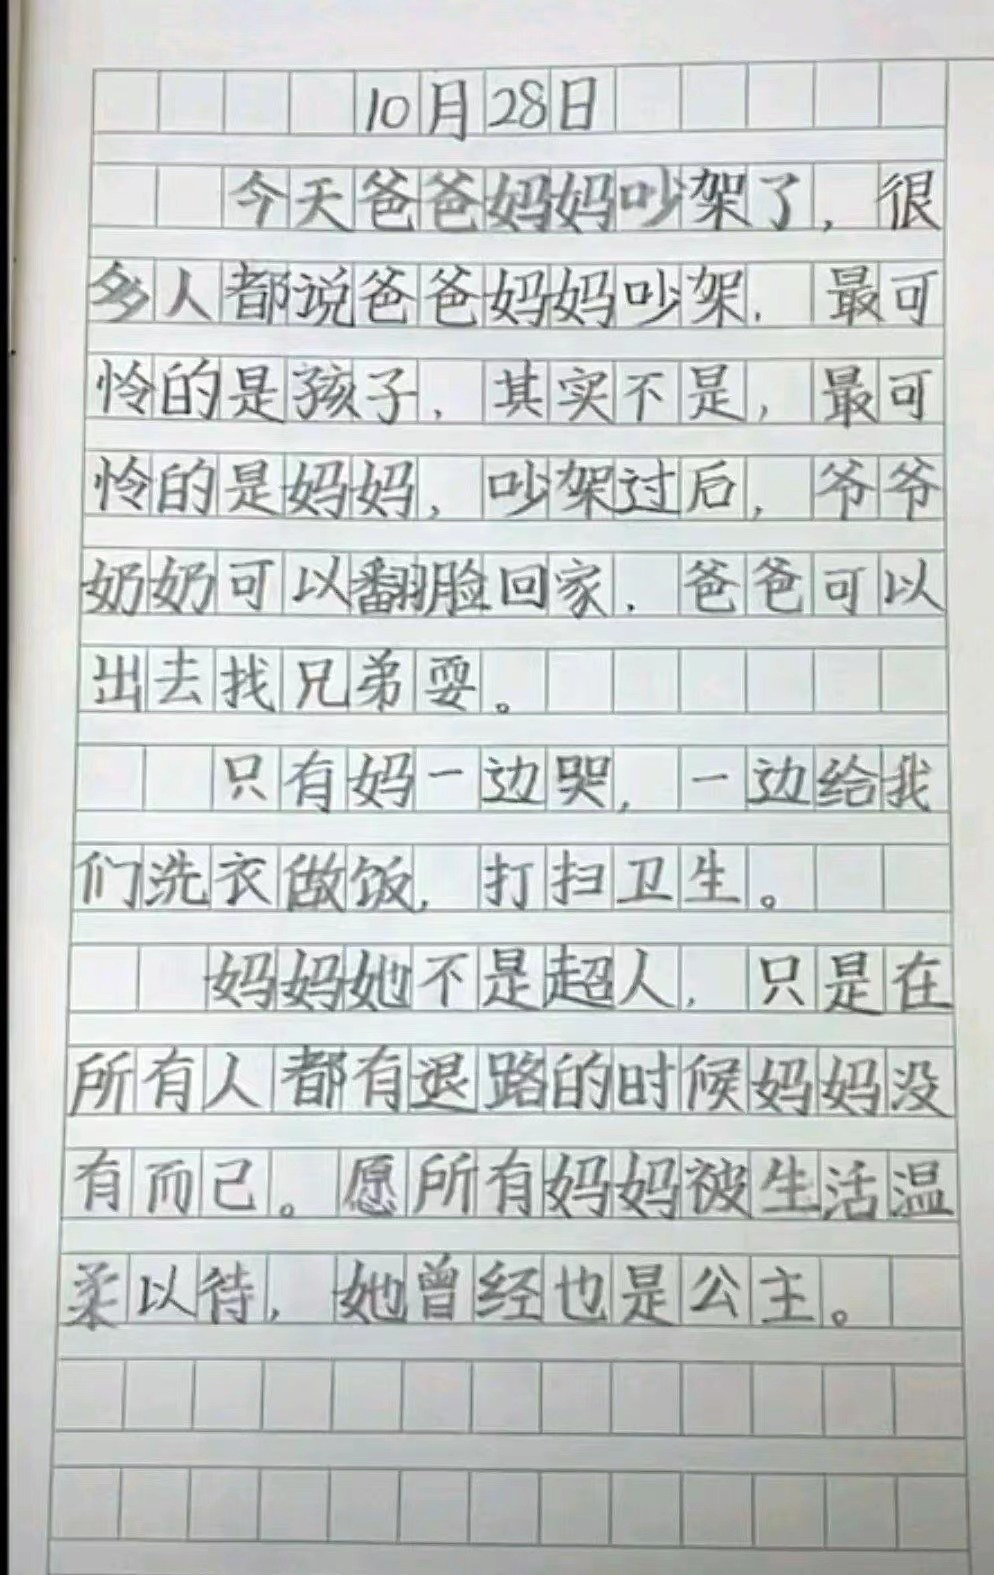 10月28日
今天爸爸妈妈吵架了，很
多人都说爸爸妈妈吵架，最可
怜的是孩子，其实不是，最可
怜的是妈妈，吵架过后，爷爷
奶奶可以翻脸回家，爸爸可以
出去找兄弟耍。
只有妈一边哭，一边给我
们洗衣做饭，打扫卫生。
妈妈她不是超人，只是在
所有人都有退路的时候妈妈没
有而己。愿所有妈妈被生活温
柔以待，她曾经也是公主。